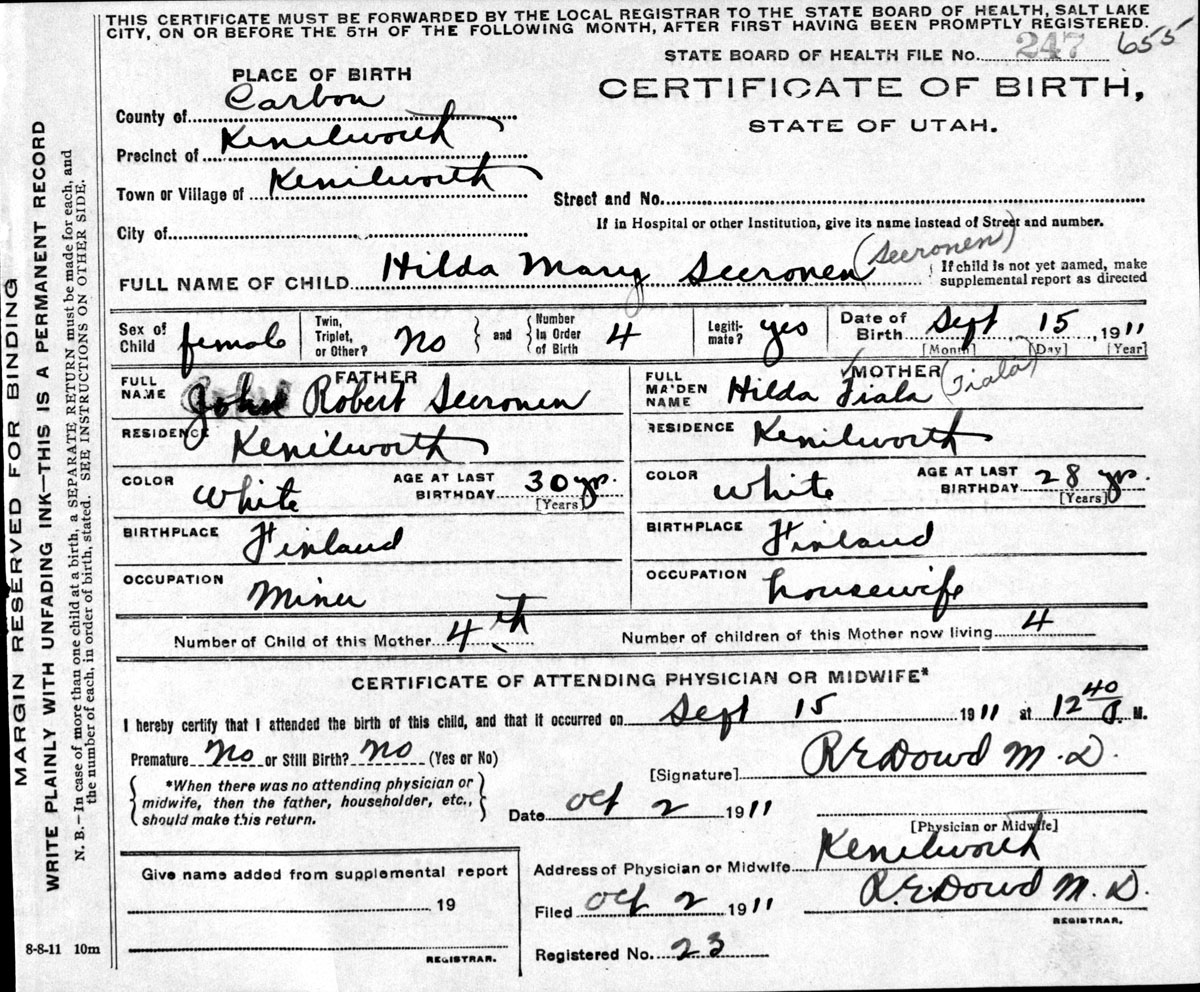 THIS CERTIFICATE MUST BE FORWARDED BY THE LOCAL REGISTRAR TO THE STATE BOARD OF HEALTH, SALT LAKE
CITY, ON OR BEFORE THE 5TH OF THE FOLLOWING MONTH, AFTER FIRST HAVING BEEN PROMPTLY REGISTERED.
STATE BOARD OF HEALTH FILE No. 247 655
PLACE OF BIRTH
CERTIFICATE OF BIRTH,
STATE OF UTAH.
County of Carbon
Precinct of Kenilworth
Town or Village of Kenilworth
Street and No.
If in Hospital or other Institution, give its name instead of Street and number.
City of
FULL NAME OF CHILD Hilda Mary Seeronen (Seeronen)
If child is not yet named, make
supplemental report as directed
Sex of Child female
Twin, Triplet, or Other? No
and
Number in Order of Birth 4
Legiti-mate? yes
Date of Birth Sept 15, 1911
[Month] [Day] [Year]
FATHER
FULL NAME John Robert Seeronen
RESIDENCE Kenilworth
COLOR White
AGE AT LAST BIRTHDAY 30 yrs.
[Years]
BIRTHPLACE Finland
OCCUPATION Miner
MOTHER
FULL MAIDEN NAME Hilda Fiala (Fiala)
RESIDENCE Kenilworth
COLOR White
AGE AT LAST BIRTHDAY 28 yrs.
[Years]
BIRTHPLACE Finland
OCCUPATION housewife
Number of Child of this Mother 4th
Number of children of this Mother now living 4
CERTIFICATE OF ATTENDING PHYSICIAN OR MIDWIFE*
I hereby certify that I attended the birth of this child, and that it occurred on Sept 15 1911 at 12 40 P. M.
Premature No or Still Birth? No (Yes or No)
[Signature] R E Dowd M. D.
*When there was no attending physician or
midwife, then the father, householder, etc.,
should make this return.
Date Oct 2 1911
[Physician or Midwife]
Address of Physician or Midwife Kenilworth
Filed Oct 2 1911 R. E. Dowd M. D.
REGISTRAR.
Registered No. 23
Give name added from supplemental report
19
REGISTRAR.
8-8-11 10m
MARGIN RESERVED FOR BINDING
WRITE PLAINLY WITH UNFADING INK—THIS IS A PERMANENT RECORD
N. B.—In case of more than one child at a birth, a SEPARATE RETURN must be made for each, and
the number of each, in order of birth, stated. SEE INSTRUCTIONS ON OTHER SIDE.